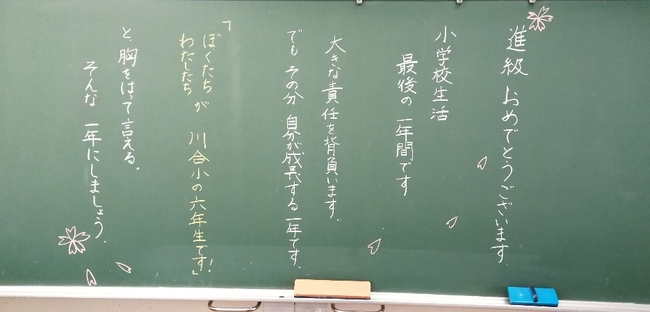 進級 おめでとうございます
小学校生活
最後の 一年間です
大きな責任を背負います.
でも その分 自分が成長する一年です.
「ぼくたち
わたしたち が 川合小の六年生です!」
と、胸をはって言える.
そんな 一年にしましょう.